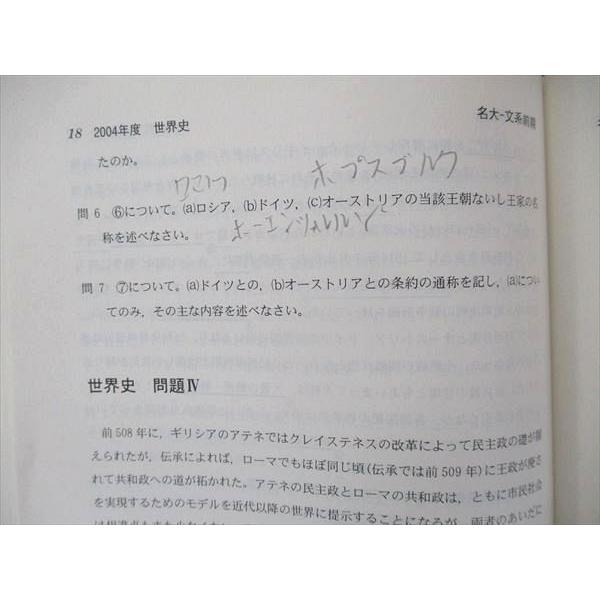 18 2004年度 世界史
名大-文系前期
たのか。
ロマノフ
ホプスブルク
問 6 ⑥について。(a)ロシア, (b)ドイツ, (c)オーストリアの当該王朝ないし王家の名
称を述べなさい。
ホーエンツォレルン
問 7 ⑦について。(a)ドイツとの, (b)オーストリアとの条約の通称を記し, (a)につい
てのみ, その主な内容を述べなさい。
世界史 問題Ⅳ
前508年に, ギリシアのアテネではクレイステネスの改革によって民主政の礎が据
えられたが, 伝承によれば, ローマでもほぼ同じ頃(伝承では前 509年)に王政が廃さ
れて共和政への道が拓かれた。アテネの民主政とローマの共和政は, ともに市民社会
を実現するためのモデルを近代以降の世界に提示することになるが, 両者のあいだに